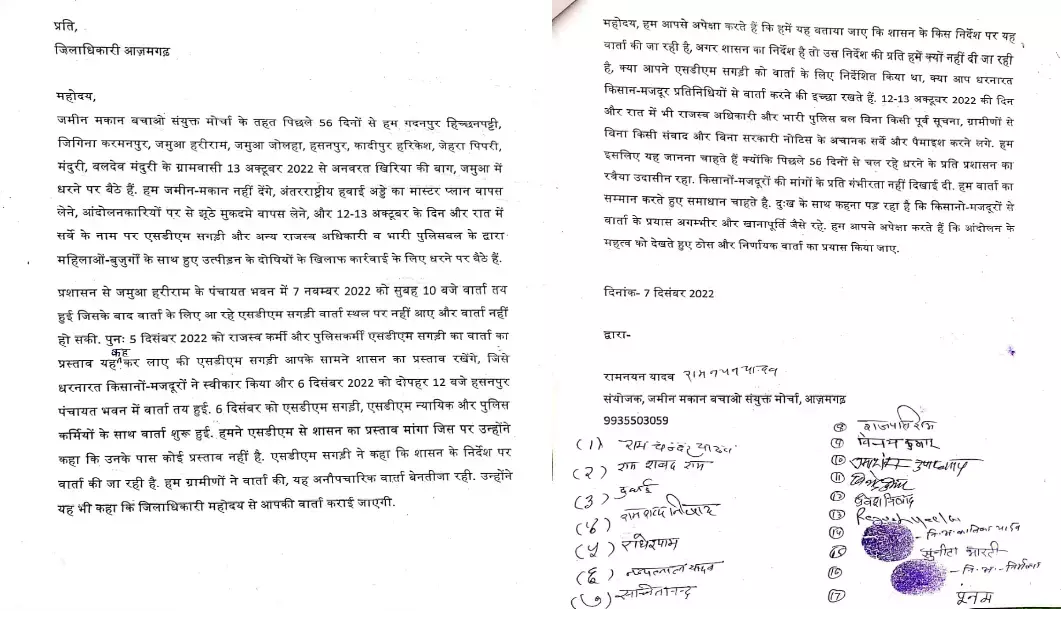 प्रति,
जिलाधिकारी आज़मगढ़
महोदय,
जमीन मकान बचाओ संयुक्त मोर्चा के तहत पिछले 56 दिनों से हम गदनपुर हिच्छनपट्टी,
जिगिना करमनपुर, जमुआ हरीराम, जमुआ जोलहा, हसनपुर, कादीपुर हरिकेश, जेहरा पिपरी,
मंदुरी, बलदेव मंदुरी के ग्रामवासी 13 अक्टूबर 2022 से अनवरत खिरिया की बाग, जमुआ में
धरने पर बैठे हैं. हम जमीन-मकान नहीं देंगे, अंतरराष्ट्रीय हवाई अड्डे का मास्टर प्लान वापस
लेने, आंदोलनकारियों पर से झूठे मुकदमे वापस लेने, और 12-13 अक्टूबर के दिन और रात में
सर्वे के नाम पर एसडीएम सगड़ी और अन्य राजस्व अधिकारी व भारी पुलिसबल के द्वारा
महिलाओं-बुजुर्गों के साथ हुए उत्पीड़न के दोषियों के खिलाफ कार्रवाई के लिए धरने पर बैठे हैं.
प्रशासन से जमुआ हरीराम के पंचायत भवन में 7 नवम्बर 2022 को सुबह 10 बजे वार्ता तय
हुई जिसके बाद वार्ता के लिए आ रहे एसडीएम सगड़ी वार्ता स्थल पर नहीं आए और वार्ता नहीं
हो सकी. पुनः 5 दिसंबर 2022 को राजस्व कर्मी और पुलिसकर्मी एसडीएम सगड़ी का वार्ता का
प्रस्ताव यह कह कर लाए की एसडीएम सगड़ी आपके सामने शासन का प्रस्ताव रखेंगे, जिसे
धरनारत किसानों-मजदूरों ने स्वीकार किया और 6 दिसंबर 2022 को दोपहर 12 बजे हसनपुर
पंचायत भवन में वार्ता तय हुई. 6 दिसंबर को एसडीएम सगड़ी, एसडीएम न्यायिक और पुलिस
कर्मियों के साथ वार्ता शुरू हुई. हमने एसडीएम से शासन का प्रस्ताव मांगा जिस पर उन्होंने
कहा कि उनके पास कोई प्रस्ताव नहीं है. एसडीएम सगड़ी ने कहा कि शासन के निर्देश पर
वार्ता की जा रही है. हम ग्रामीणों ने वार्ता की, यह अनौपचारिक वार्ता बेनतीजा रही. उन्होंने
यह भी कहा कि जिलाधिकारी महोदय से आपकी वार्ता कराई जाएगी.
महोदय, हम आपसे अपेक्षा करते हैं कि हमें यह बताया जाए कि शासन के किस निर्देश पर यह
वार्ता की जा रही है, अगर शासन का निर्देश है तो उस निर्देश की प्रति हमें क्यों नहीं दी जा रही
है, क्या आपने एसडीएम सगड़ी को वार्ता के लिए निर्देशित किया था, क्या आप धरनारत
किसान-मजदूर प्रतिनिधियों से वार्ता करने की इच्छा रखते हैं. 12-13 अक्टूबर 2022 की दिन
और रात में भी राजस्व अधिकारी और भारी पुलिस बल बिना किसी पूर्व सूचना, ग्रामीणों से
बिना किसी संवाद और बिना सरकारी नोटिस के अचानक सर्वे और पैमाइश करने लगे. हम
इसलिए यह जानना चाहते हैं क्योंकि पिछले 56 दिनों से चल रहे धरने के प्रति प्रशासन का
रवैया उदासीन रहा. किसानों-मजदूरों की मांगों के प्रति गंभीरता नहीं दिखाई दी. हम वार्ता का
सम्मान करते हुए समाधान चाहते है. दुःख के साथ कहना पड़ रहा है कि किसानो-मजदूरों से
वार्ता के प्रयास अगम्भीर और खानापूर्ति जैसे रहे. हम आपसे अपेक्षा करते हैं कि आंदोलन के
महत्व को देखते हुए ठोस और निर्णायक वार्ता का प्रयास किया जाए.
दिनांक- 7 दिसंबर 2022
द्वारा-
रामनयन यादव रामनयन यादव
संयोजक, जमीन मकान बचाओ संयुक्त मोर्चा, आज़मगढ़
9935503059
(1) राम चन्दर यादव
(२) राम शबद राम
(3) दुखाई
(४) रामशब्द निषाद
(५)
(६) यादव
(७)
(८) राजपति राम
(९) विनय कुमार
(१०) उपाध्याय
(११)
(१२) प्रवेश निषाद
(१३)
(१४) नि.अ.कालिका यादव
(१५) सुनीता भारती
(१६) नि.अ. निर्मला
(१७) पूनम